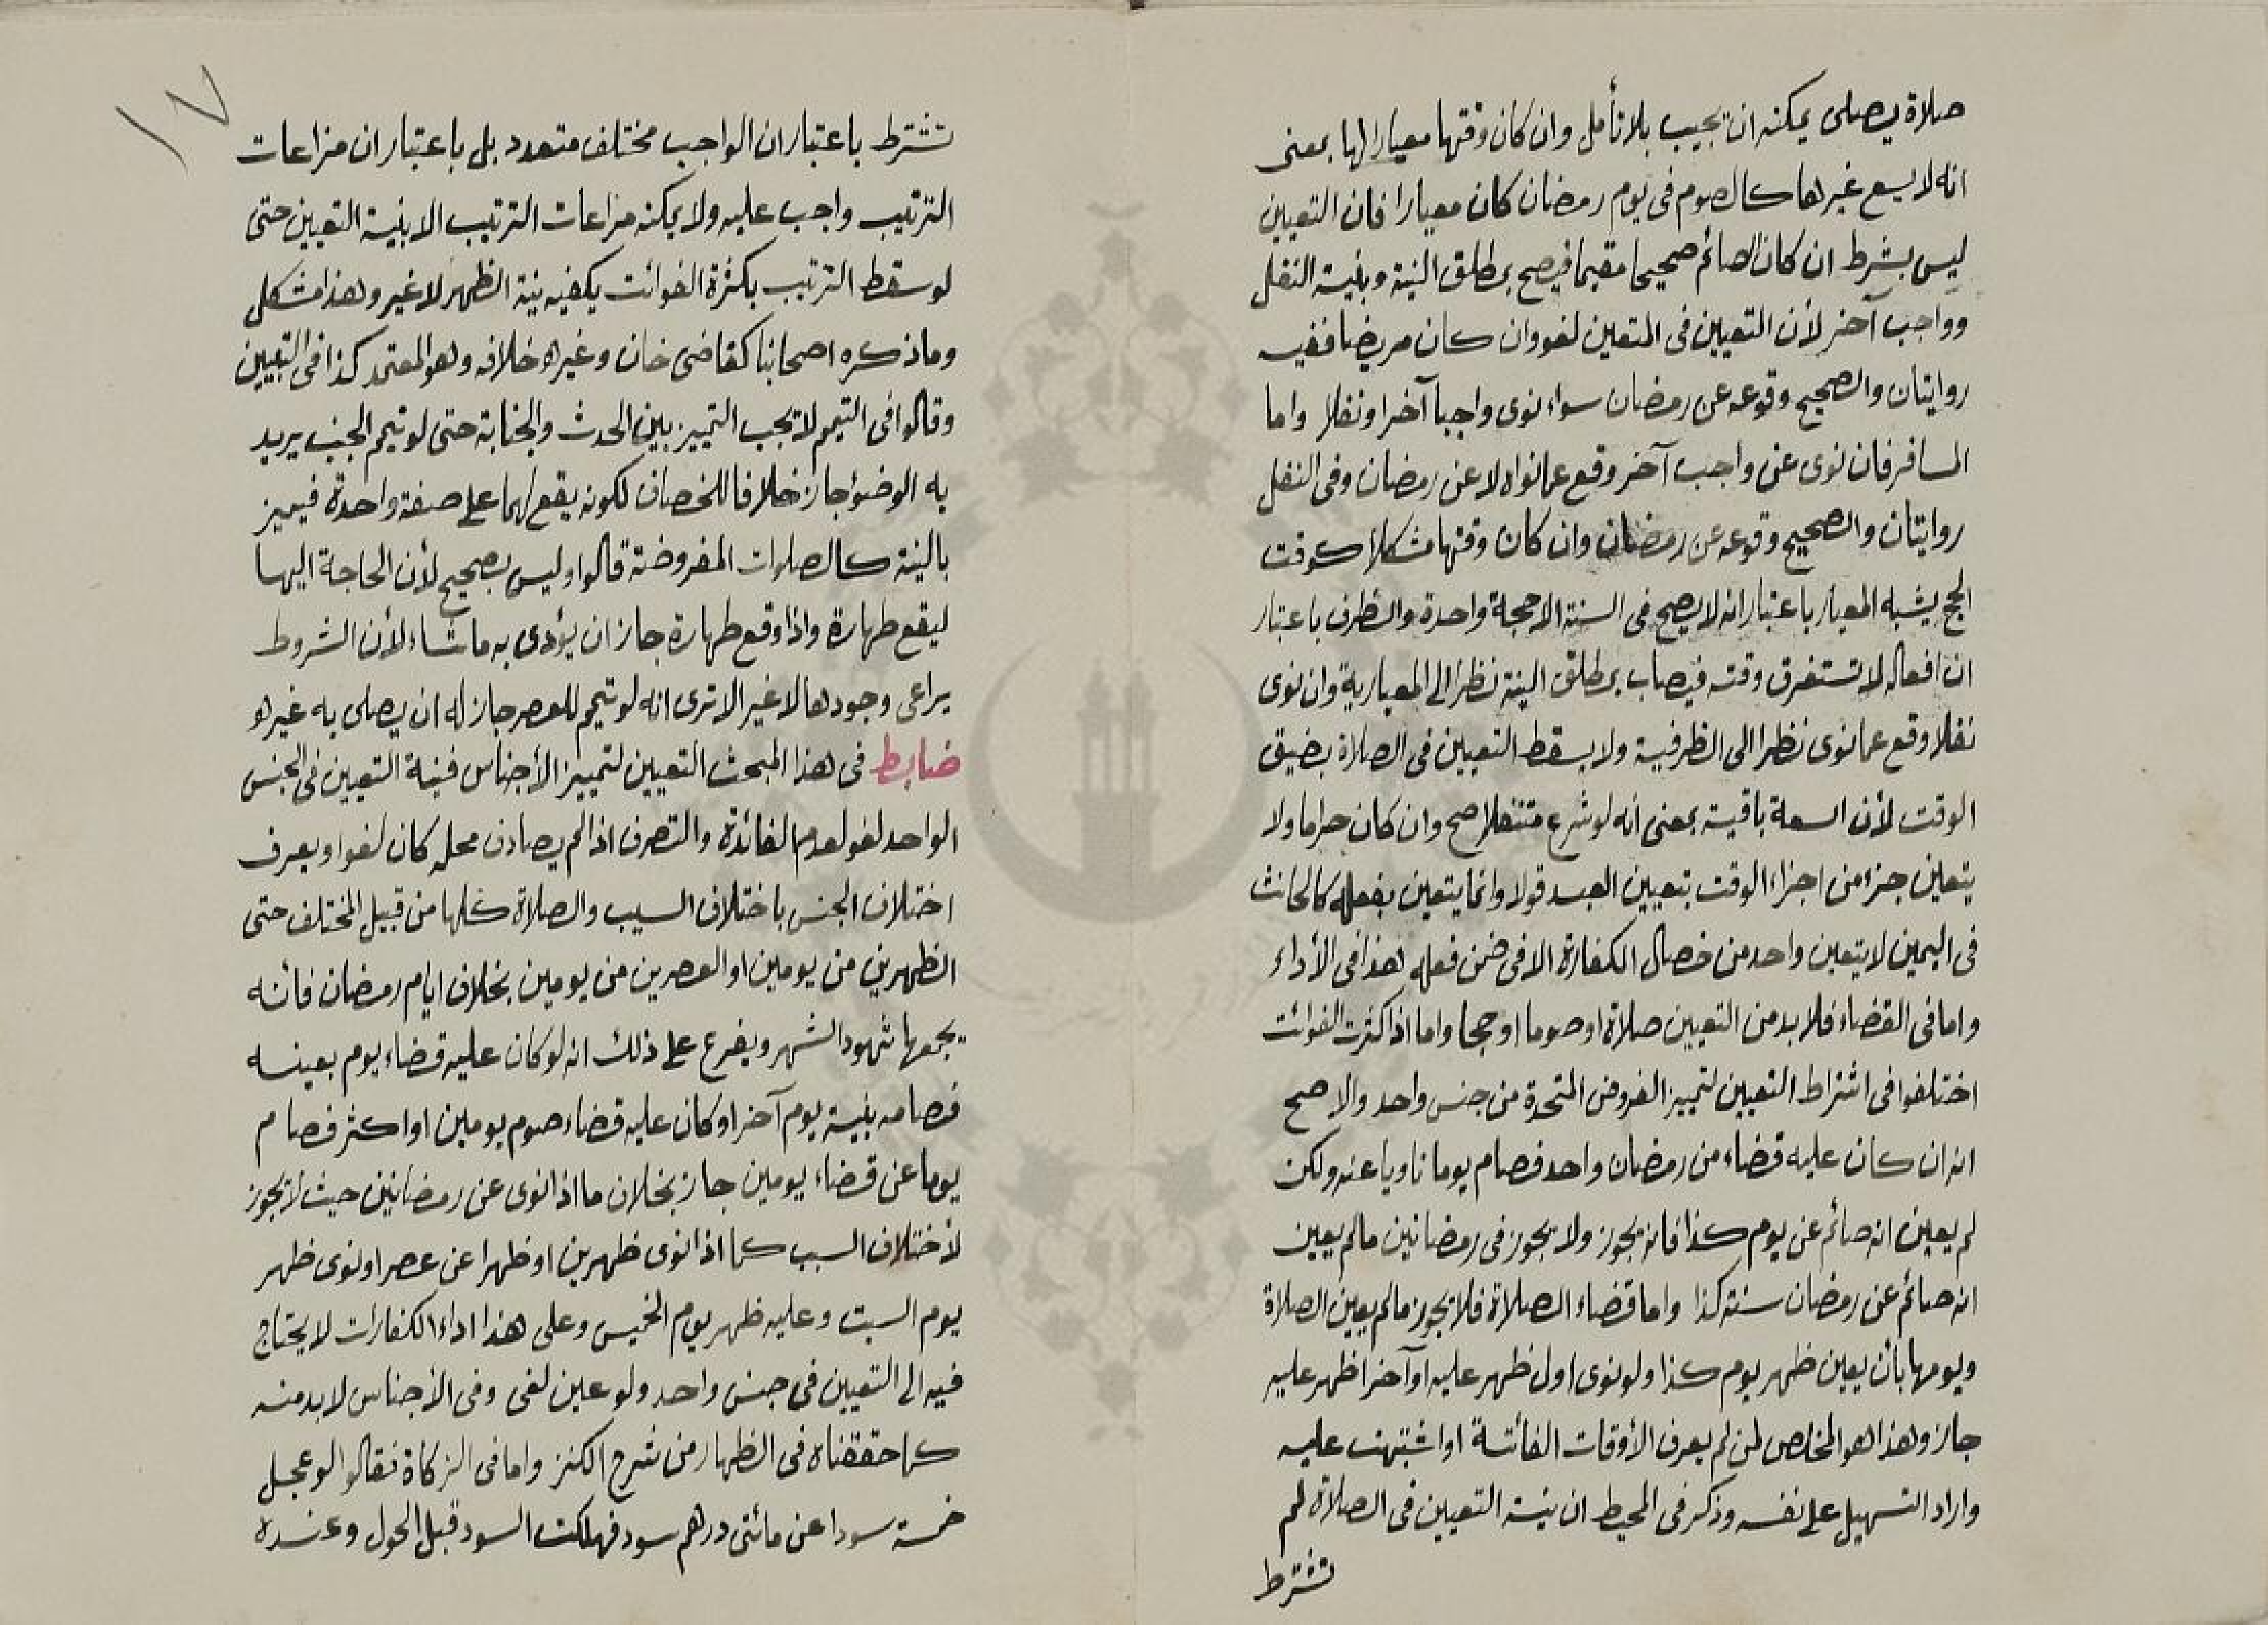 صلاة يصلى يمكنه ان يجيب بلا تأمل وان كان وقتها معيارا لها بمعنى
انه لا يسع غيرها كالصوم فى يوم رمضان كان معيارا فان التعيين
ليس بشرط ان كان الصائم صحيحا مقيما فيصح بمطلق النية وبنية النفل
وواجب آخر لأن التعيين فى المتعين لغو وان كان مريضا ففيه
روايتان والصحيح وقوعه عن رمضان سواء نوى واجبا آخر او نفلا واما
المسافر فان نوى عن واجب آخر وقع عما نواه لا عن رمضان وفى النفل
روايتان والصحيح وقوعه عن رمضان وان كان وقتها مشكلا كوقت
الحج يشبه المعيار باعتبار انه لا يصح فى السنة الا حجة واحدة والظرف باعتبار
ان افعاله لا تستغرق وقته فيصاب بمطلق النية نظرا الى المعيارية وان نوى
نفلا وقع عما نوى نظرا الى الظرفية ولا يسقط التعيين فى الصلاة بضيق
الوقت لأن السعة باقية بمعنى انه لو شرع متنفلا صح وان كان حراما ولا
يتعين جزء من اجزاء الوقت بتعيين العبد قولا وانما يتعين بفعله كالحانث
فى اليمين لا يتعين واحد من خصال الكفارة الا فى ضمن فعله هذا فى الأداء
واما فى القضاء فلا بد من التعيين صلاة او صوما او حجا واما اذا كثرت الفوائت
اختلفوا فى اشتراط التعيين لتمييز الفروض المتحدة من جنس واحد والاصح
انه ان كان عليه قضاء من رمضان واحد فصام يوما ناويا عنه ولكن
لم يعين انه صائم عن يوم كذا فانه يجوز ولا يجوز فى رمضانين مالم يعين
انه صائم عن رمضان سنة كذا واما قضاء الصلاة فلا يجوز مالم يعين الصلاة
ويومها بأن يعين ظهر يوم كذا ولو نوى اول ظهر عليه او آخر ظهر عليه
جاز وهذا هو المخلص لمن لم يعرف الأوقات الفائتة او اشتبهت عليه
واراد التسهيل على نفسه وذكر فى المحيط ان نية التعيين فى الصلاة لم
تشترط
١٧
تشترط باعتبار ان الواجب مختلف متعدد بل باعتبار ان مراعات
الترتيب واجب عليه ولا يمكنه مراعات الترتيب الا بنية التعيين حتى
لو سقط الترتيب بكثرة الفوائت يكفيه نية الظهر لا غير وهذا مشكل
وما ذكره اصحابنا كقاضى خان وغيره خلافه وهو المعتمد كذا فى التبيين
وقالوا فى التيمم لا يجب التمييز بين الحدث والجنابة حتى لو تيمم الجنب يريد
به الوضوء جاز خلافا للخصاف لكونه يقع لهما على صفة واحدة فيميز
بالنية كالصلوات المفروضة قالوا وليس بصحيح لأن الحاجة اليها
ليقع طهارة واذا وقع طهارة جاز ان يؤدى به ما شاء لأن الشروط
يراعى وجودها لا غير الا ترى انه لو تيمم للعصر جاز له ان يصلى به غيره
ضابط فى هذا المبحث التعيين لتمييز الأجناس فنية التعيين فى الجنس
الواحد لغو لعدم الفائدة والتصرف اذا لم يصادف محله كان لغوا ويعرف
اختلاف الجنس باختلاف السبب والصلاة كلها من قبيل المختلف حتى
الظهرين من يومين او العصرين من يومين بخلاف ايام رمضان فانه
يجمعها شهود الشهر ويفرع على ذلك انه لو كان عليه قضاء يوم بعينه
فصامه بنية يوم آخر او كان عليه قضاء صوم يومين او اكثر فصام
يوما عن قضاء يومين جاز بخلاف ما اذا نوى عن رمضانين حيث لا يجوز
لأختلاف السبب كما اذا نوى ظهرين او ظهرا عن عصر او نوى ظهر
يوم السبت وعليه ظهر يوم الخميس وعلى هذا اداء الكفارات لا يحتاج
فيه الى التعيين فى جنس واحد ولو عين لغى وفى الأجناس لا بد منه
كما حققناه فى الظهار من شرح الكنز واما فى الزكاة فقالوا لو عجل
خمسة سودا عن مائتى درهم سود فهلكت السود قبل الحول وعنده